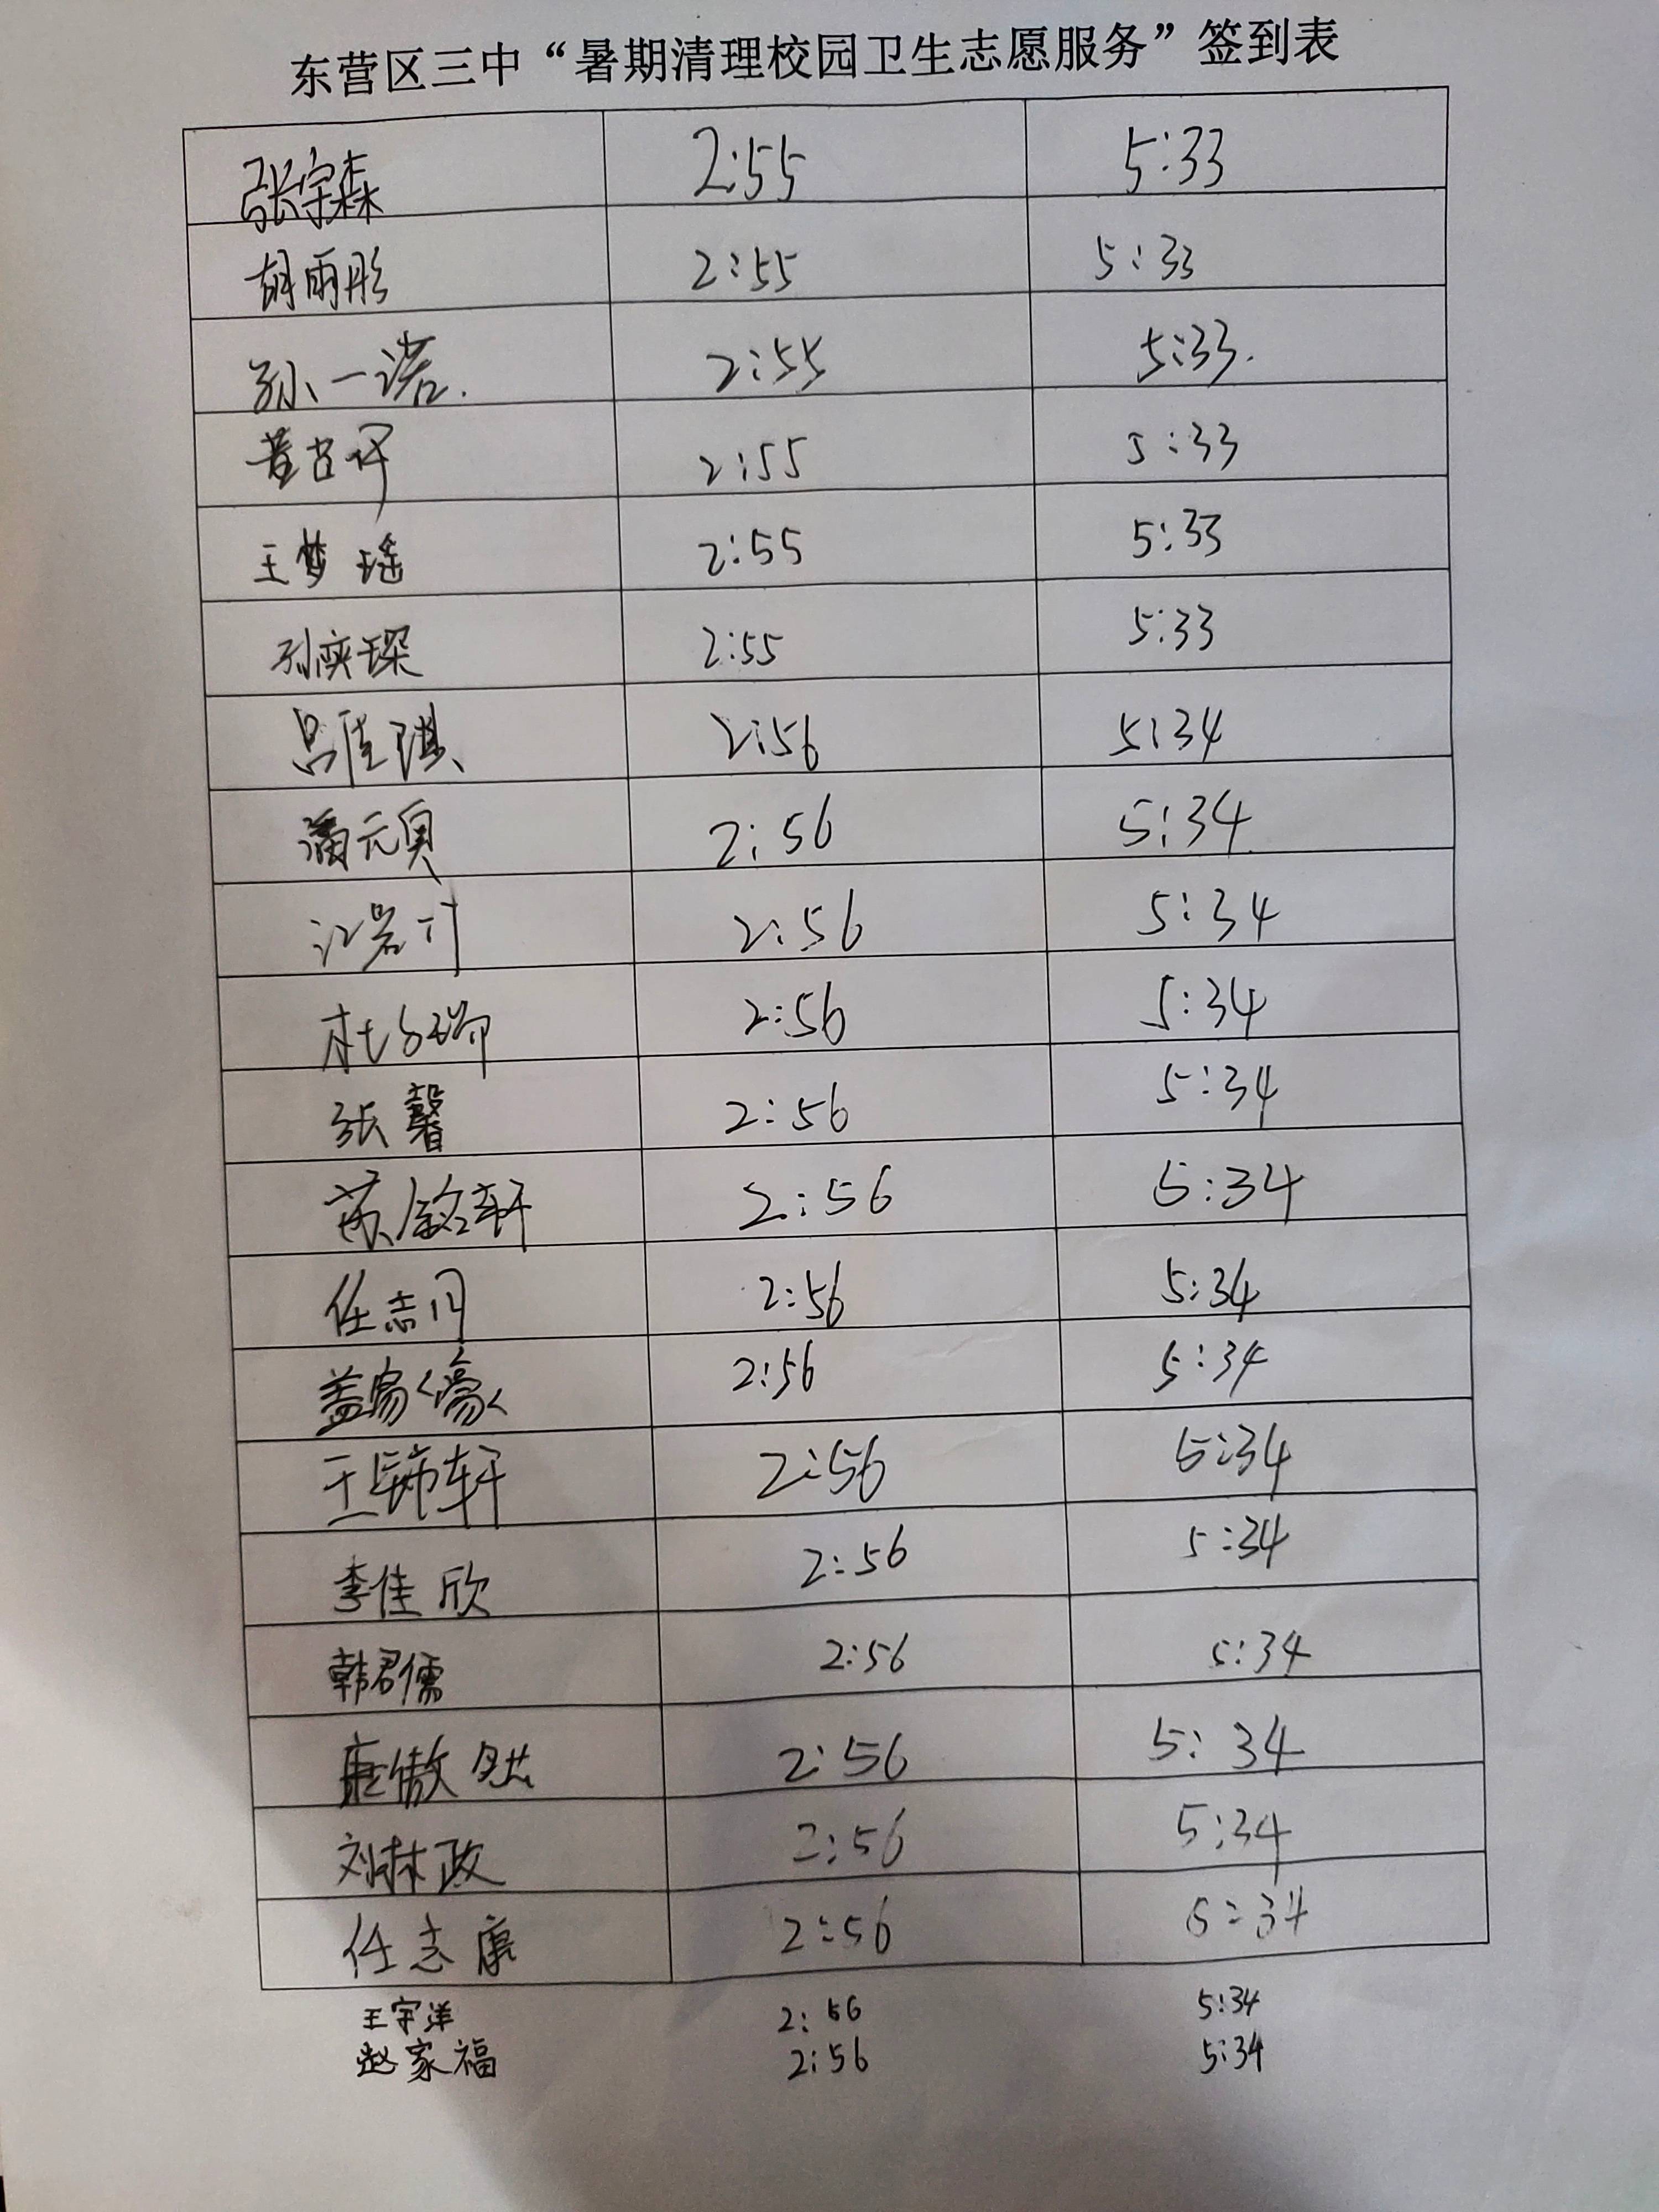 东营区三中“暑期清理校园卫生志愿服务”签到表
张宇森 2:55 5:33
胡雨彤 2:55 5:33
孙一诺. 2:55 5:33.
2:55 5:33
王梦瑶 2:55 5:33
孙奕琛 2:55 5:33
吕佳琪 2:56 5:34
潘元 2:56 5:34
江 2:56 5:34
杜 瑞 2:56 5:34
张馨 2:56 5:34
铭轩 2:56 5:34
任志 2:56 5:34
盖 2:56 5:34
王 轩 2:56 5:34
李佳欣 2:56 5:34
韩君儒 2:56 5:34
康傲然 2:56 5:34
刘林政 2:56 5:34
任志康 2:56 5:34
王宇洋 2:56 5:34
赵家福 2:56 5:34